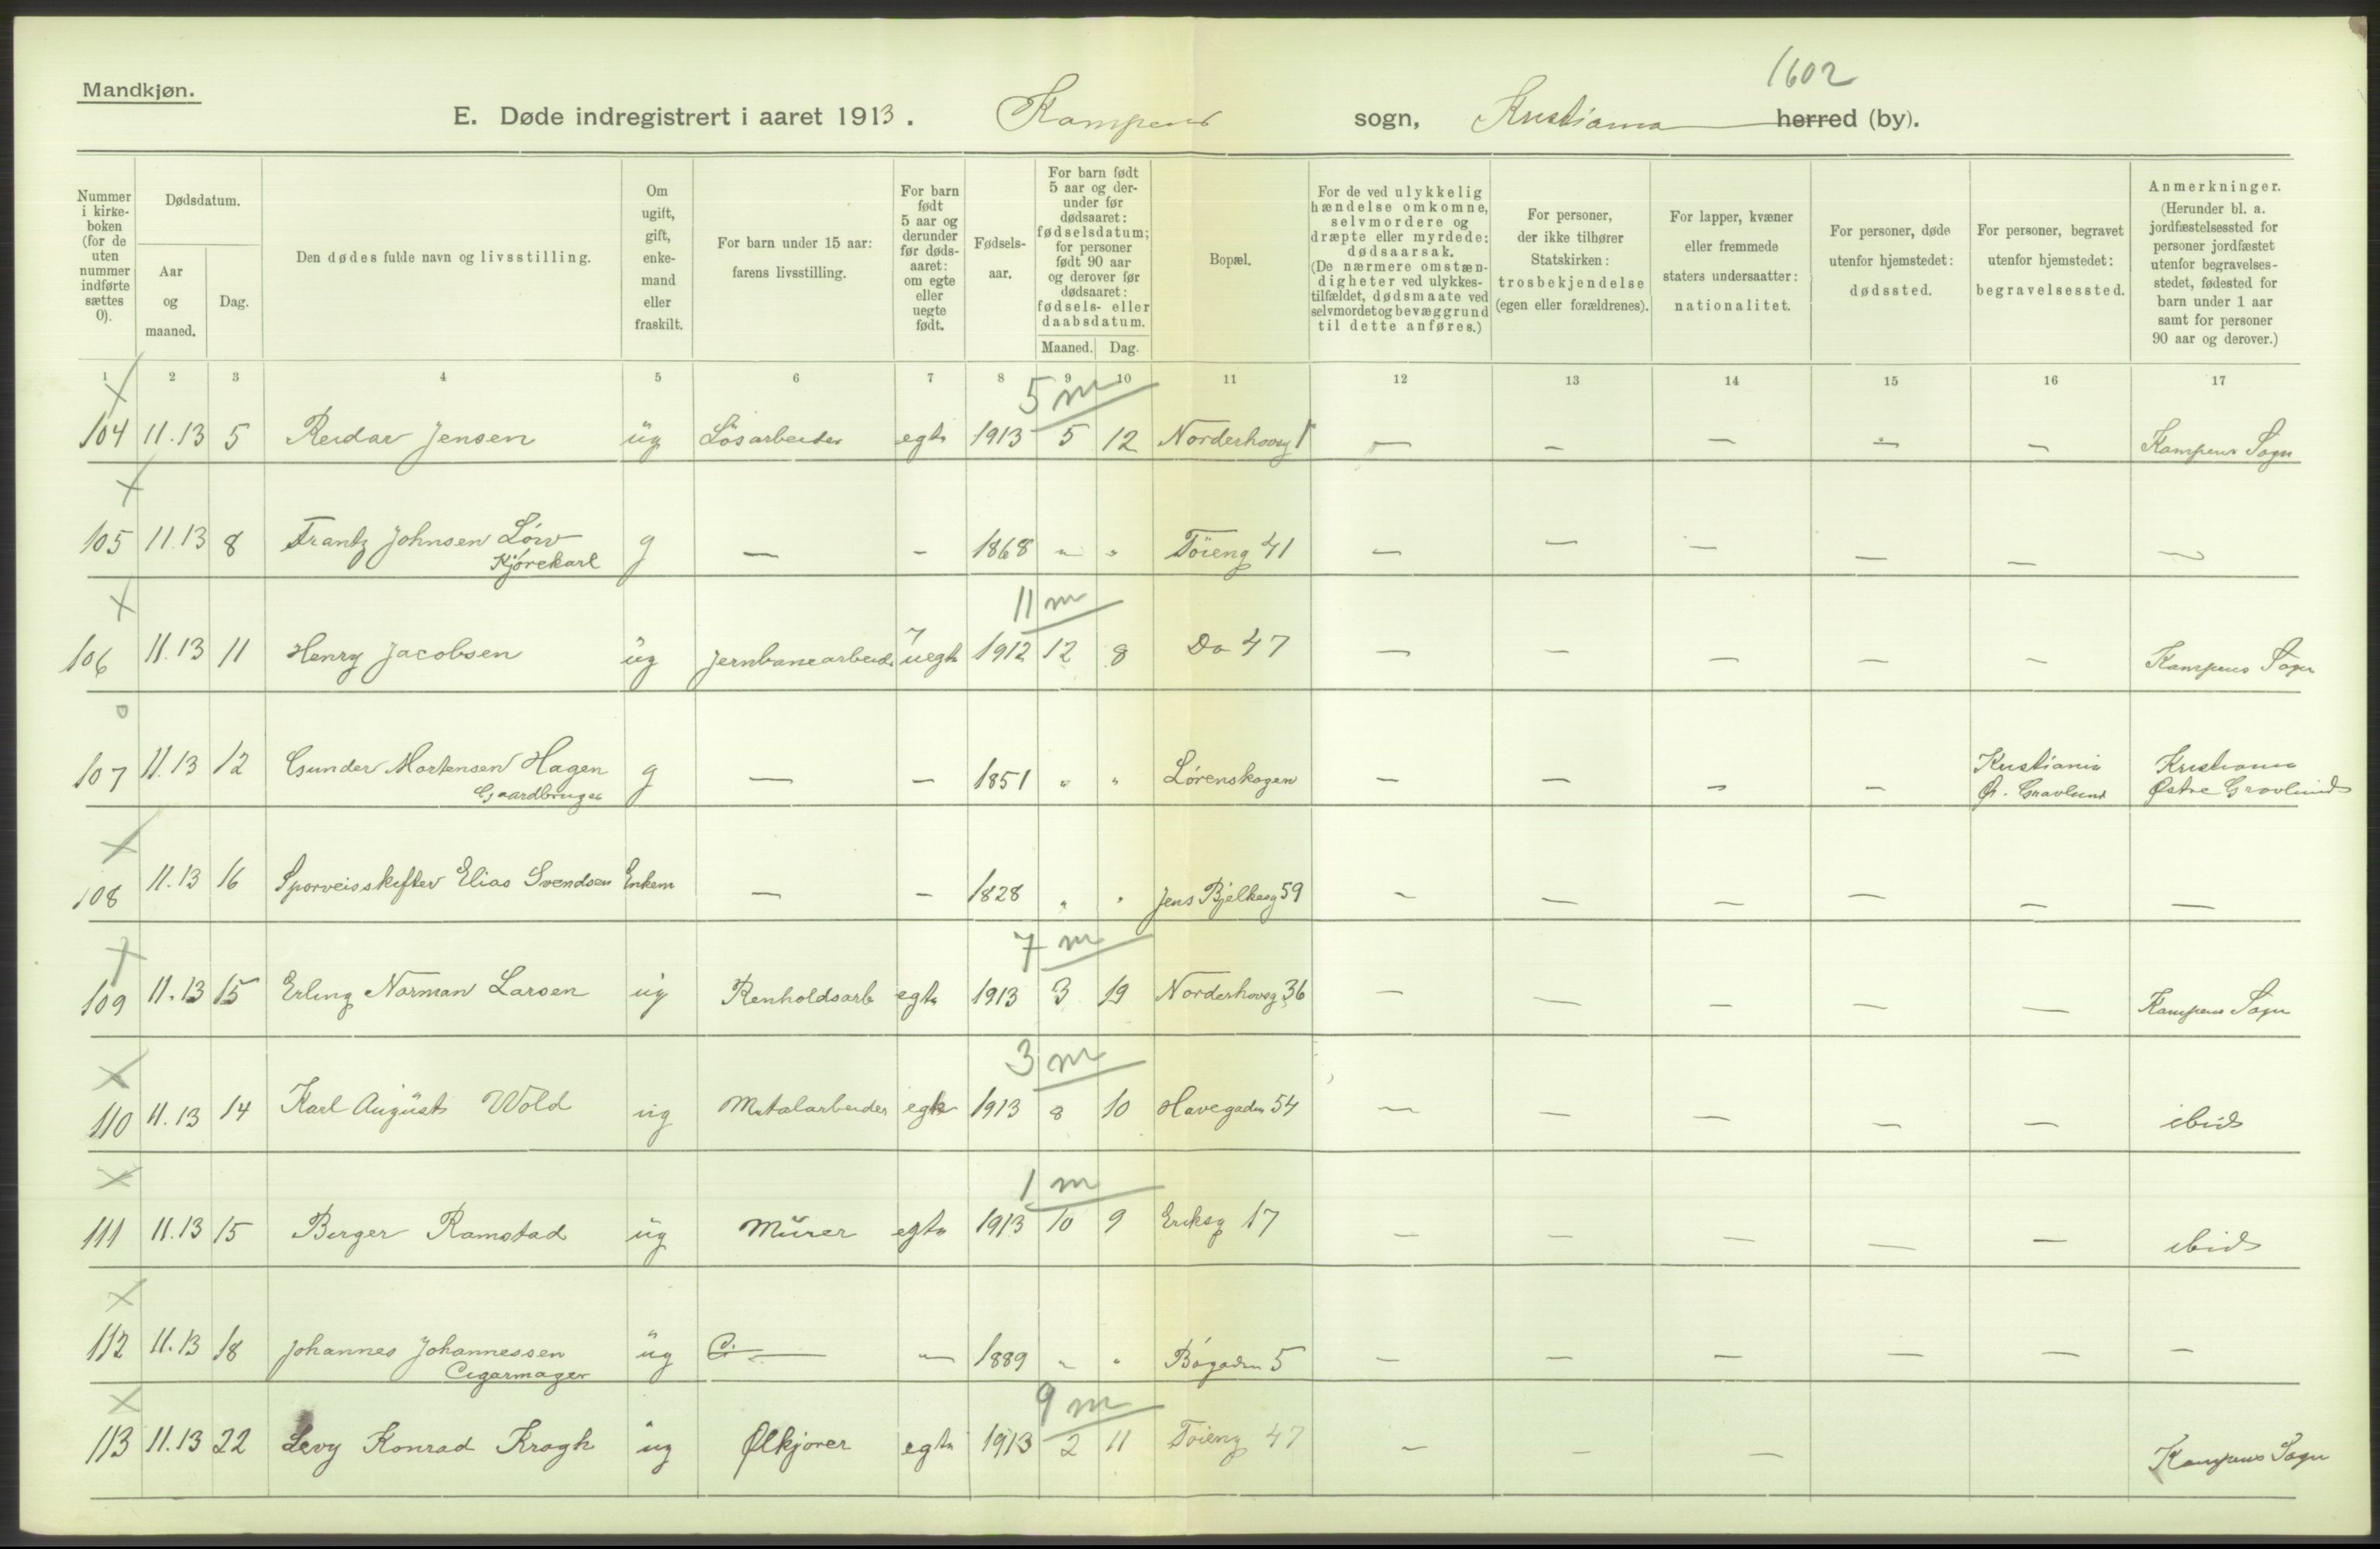 1602
Mandkjøn.
E. Døde indregistrert i aaret 1913. Kampens sogn, Kristiania herred (by).
Nummer i kirke- boken (for de uten nummer indførte sættes 0).
Dødsdatum.
Aar og maaned.
Dag.
Den dødes fulde navn og livsstilling.
Om ugift, gift, enke- mand eller fraskilt.
For barn under 15 aar: farens livsstilling.
For barn født 5 aar og derunder før døds- aaret: om egte eller uegte født.
Fødsels- aar.
For barn født 5 aar og der- under før dødsaaret: fødselsdatum; for personer født 90 aar og derover før dødsaaret: fødsels- eller daabsdatum.
Maaned. Dag.
Bopæl.
For de ved ulykkelig hændelse omkomne, selvmordere og dræpte eller myrdede: dødsaarsak. (De nærmere omstæn- digheter ved ulykkes- tilfældet, dødsmaate ved selvmordet og bevæggrund til dette anføres.)
For personer, der ikke tilhører Statskirken: trosbekjendelse (egen eller forældrenes).
For lapper, kvæner eller fremmede staters undersaatter: nationalitet.
For personer, døde utenfor hjemstedet: dødssted.
For personer, begravet utenfor hjemstedet: begravelsessted.
Anmerkninger. (Herunder bl. a. jordfæstelsessted for personer jordfæstet utenfor begravelses- stedet, fødested for barn under 1 aar samt for personer 90 aar og derover.)
1 2 3 4 5 6 7 8 9 10 11 12 13 14 15 16 17
X 5 m
104 11.13 5 Reidar Jensen ug Løsarbeider egte 1913 5 12 Norderhovsg 1 — — — — — Kampens Sogn
X
105 11.13 8 Frantz Johnsen Löw g — — 1868 " " Töieng 41 — — — — — —
Kjørekarl
X 11 m
106 11.13 11 Henry Jacobsen ug Jernbanearbeid. uegte 1912 12 8 Do 47 — — — — — Kampens Sogn
o
107 11.13 12 Gunder Mortensen Hagen g — — 1851 " " Lørenskogen — — — — Kristiania Kristiania
Gaardbruger Ø. Gravlund Østre Gravlund
X
108 11.13 16 Sporveisskifter Elias Svendsen Enkem — — 1828 " " Jens Bjelkesg 59 — — — — — —
X 7 m
109 11.13 15 Erling Norman Larsen ug Renholdsarb egte 1913 3 19 Norderhovsg 36 — — — — — Kampens Sogn
X 3 m
110 11.13 14 Karl August Wold ug Metalarbeider egte 1913 8 10 Havegaden 54 — — — — — ibid
X 1 m
111 11.13 15 Birger Ramstad ug Murer egte 1913 10 9 Eriksg 17 — — — — — ibid
X
112 11.13 18 Johannes Johannessen ug — — 1889 " " Bøgaden 5 — — — — — —
Cigarmager
X 9 m
113 11.13 22 Levy Konrad Krogh ug Ølkjører egte 1913 2 11 Töieng 47 — — — Kampens Sogn